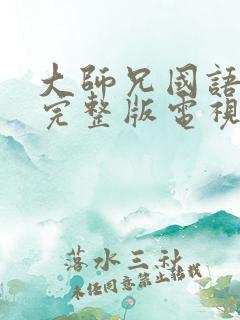 大師兄國語
完整版電視
落水三秋
未经同意禁止转载